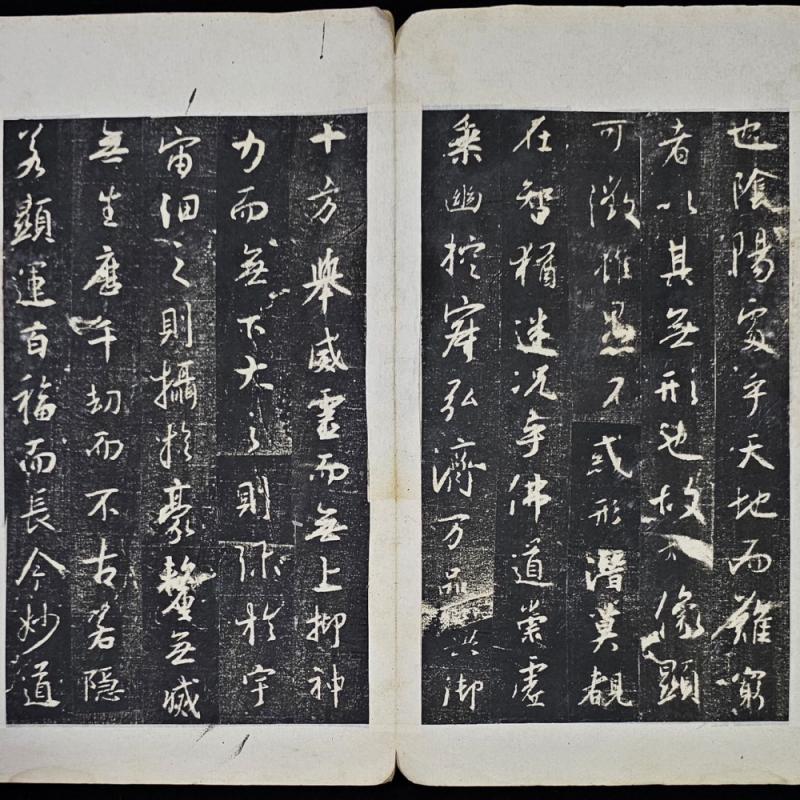 也陰陽處乎天地而難窮
者以其無形也故像顯
可徵雖愚不惑形潛莫覩
在智猶迷況乎佛道崇虛
乘幽控寂弘濟万品典御
十方舉威靈而無上抑神
力而無下大之則弥於宇
宙細之則攝於豪釐無滅
無生歷千劫而不古若隱
若顯運百福而長今妙道